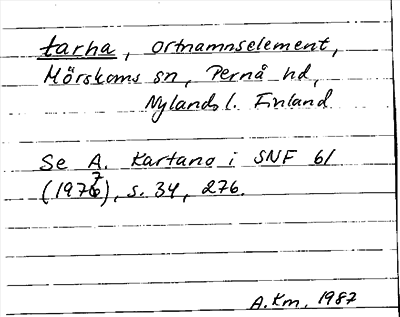 tarha, ortnamnselement,
Mörskoms sn, Pernå hd,
Nylands l. Finland
Se A. Kartano i SNF 61
(1977), s. 34, 276.
A.Km. 1987